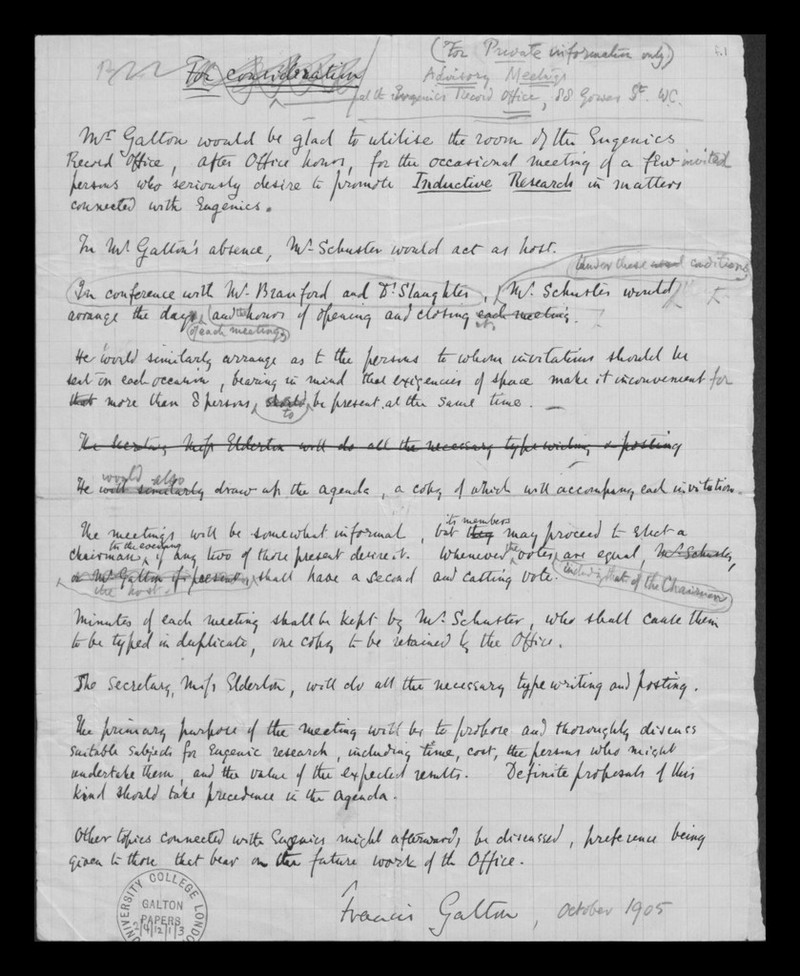 (For Private information only)
For consideration
Advisory Meetings
at the Eugenics Record Office, 88 Gower St. W.C.
Mr. Galton would be glad to utilise the room of the Eugenics
Record Office, after Office hours, for the occasional meeting of a few invited
persons who seriously desire to promote Inductive Research in matters
connected with Eugenics.
In Mr Galton's absence, Mr. Schuster would act as host.
Under these conditions
In conference with Mr. Branford and Dr. Slaughter, Mr. Schuster would
arrange the days and hours of opening and closing each meeting.
of each meeting
He would similarly arrange as to the persons to whom invitations should be
sent on each occasion, bearing in mind that exigencies of space make it inconvenient for
that more than 8 persons should be present at the same time.
to
The Secretary Miss Elderton will do all the necessary typewriting & posting
would also
He will similarly draw up the agenda, a copy of which will accompany each invitation.
its members
The meetings will be somewhat informal, but they may proceed to elect a
for the evening
chairman if any two of those present desire it. Whenever the votes are equal, Mr. Schuster,
or Mr Galton if present, shall have a second and casting vote.
the host
including that of the Chairman
Minutes of each meeting shall be kept by Mr. Schuster, who shall cause them
to be typed in duplicate, one copy to be retained by the Office.
The Secretary, Miss Elderton, will do all the necessary type writing and posting.
The primary purpose of the meeting will be to propose and thoroughly discuss
suitable subjects for Eugenic research, including time, cost, the persons who might
undertake them, and the value of the expected results. Definite proposals of this
kind should take precedence in the Agenda.
Other topics connected with Eugenics might afterwards be discussed, preference being
given to those that bear on the future work of the Office.
Francis Galton, October 1905
UNIVERSITY COLLEGE LONDON
GALTON
PAPERS
2/4/12/1/3